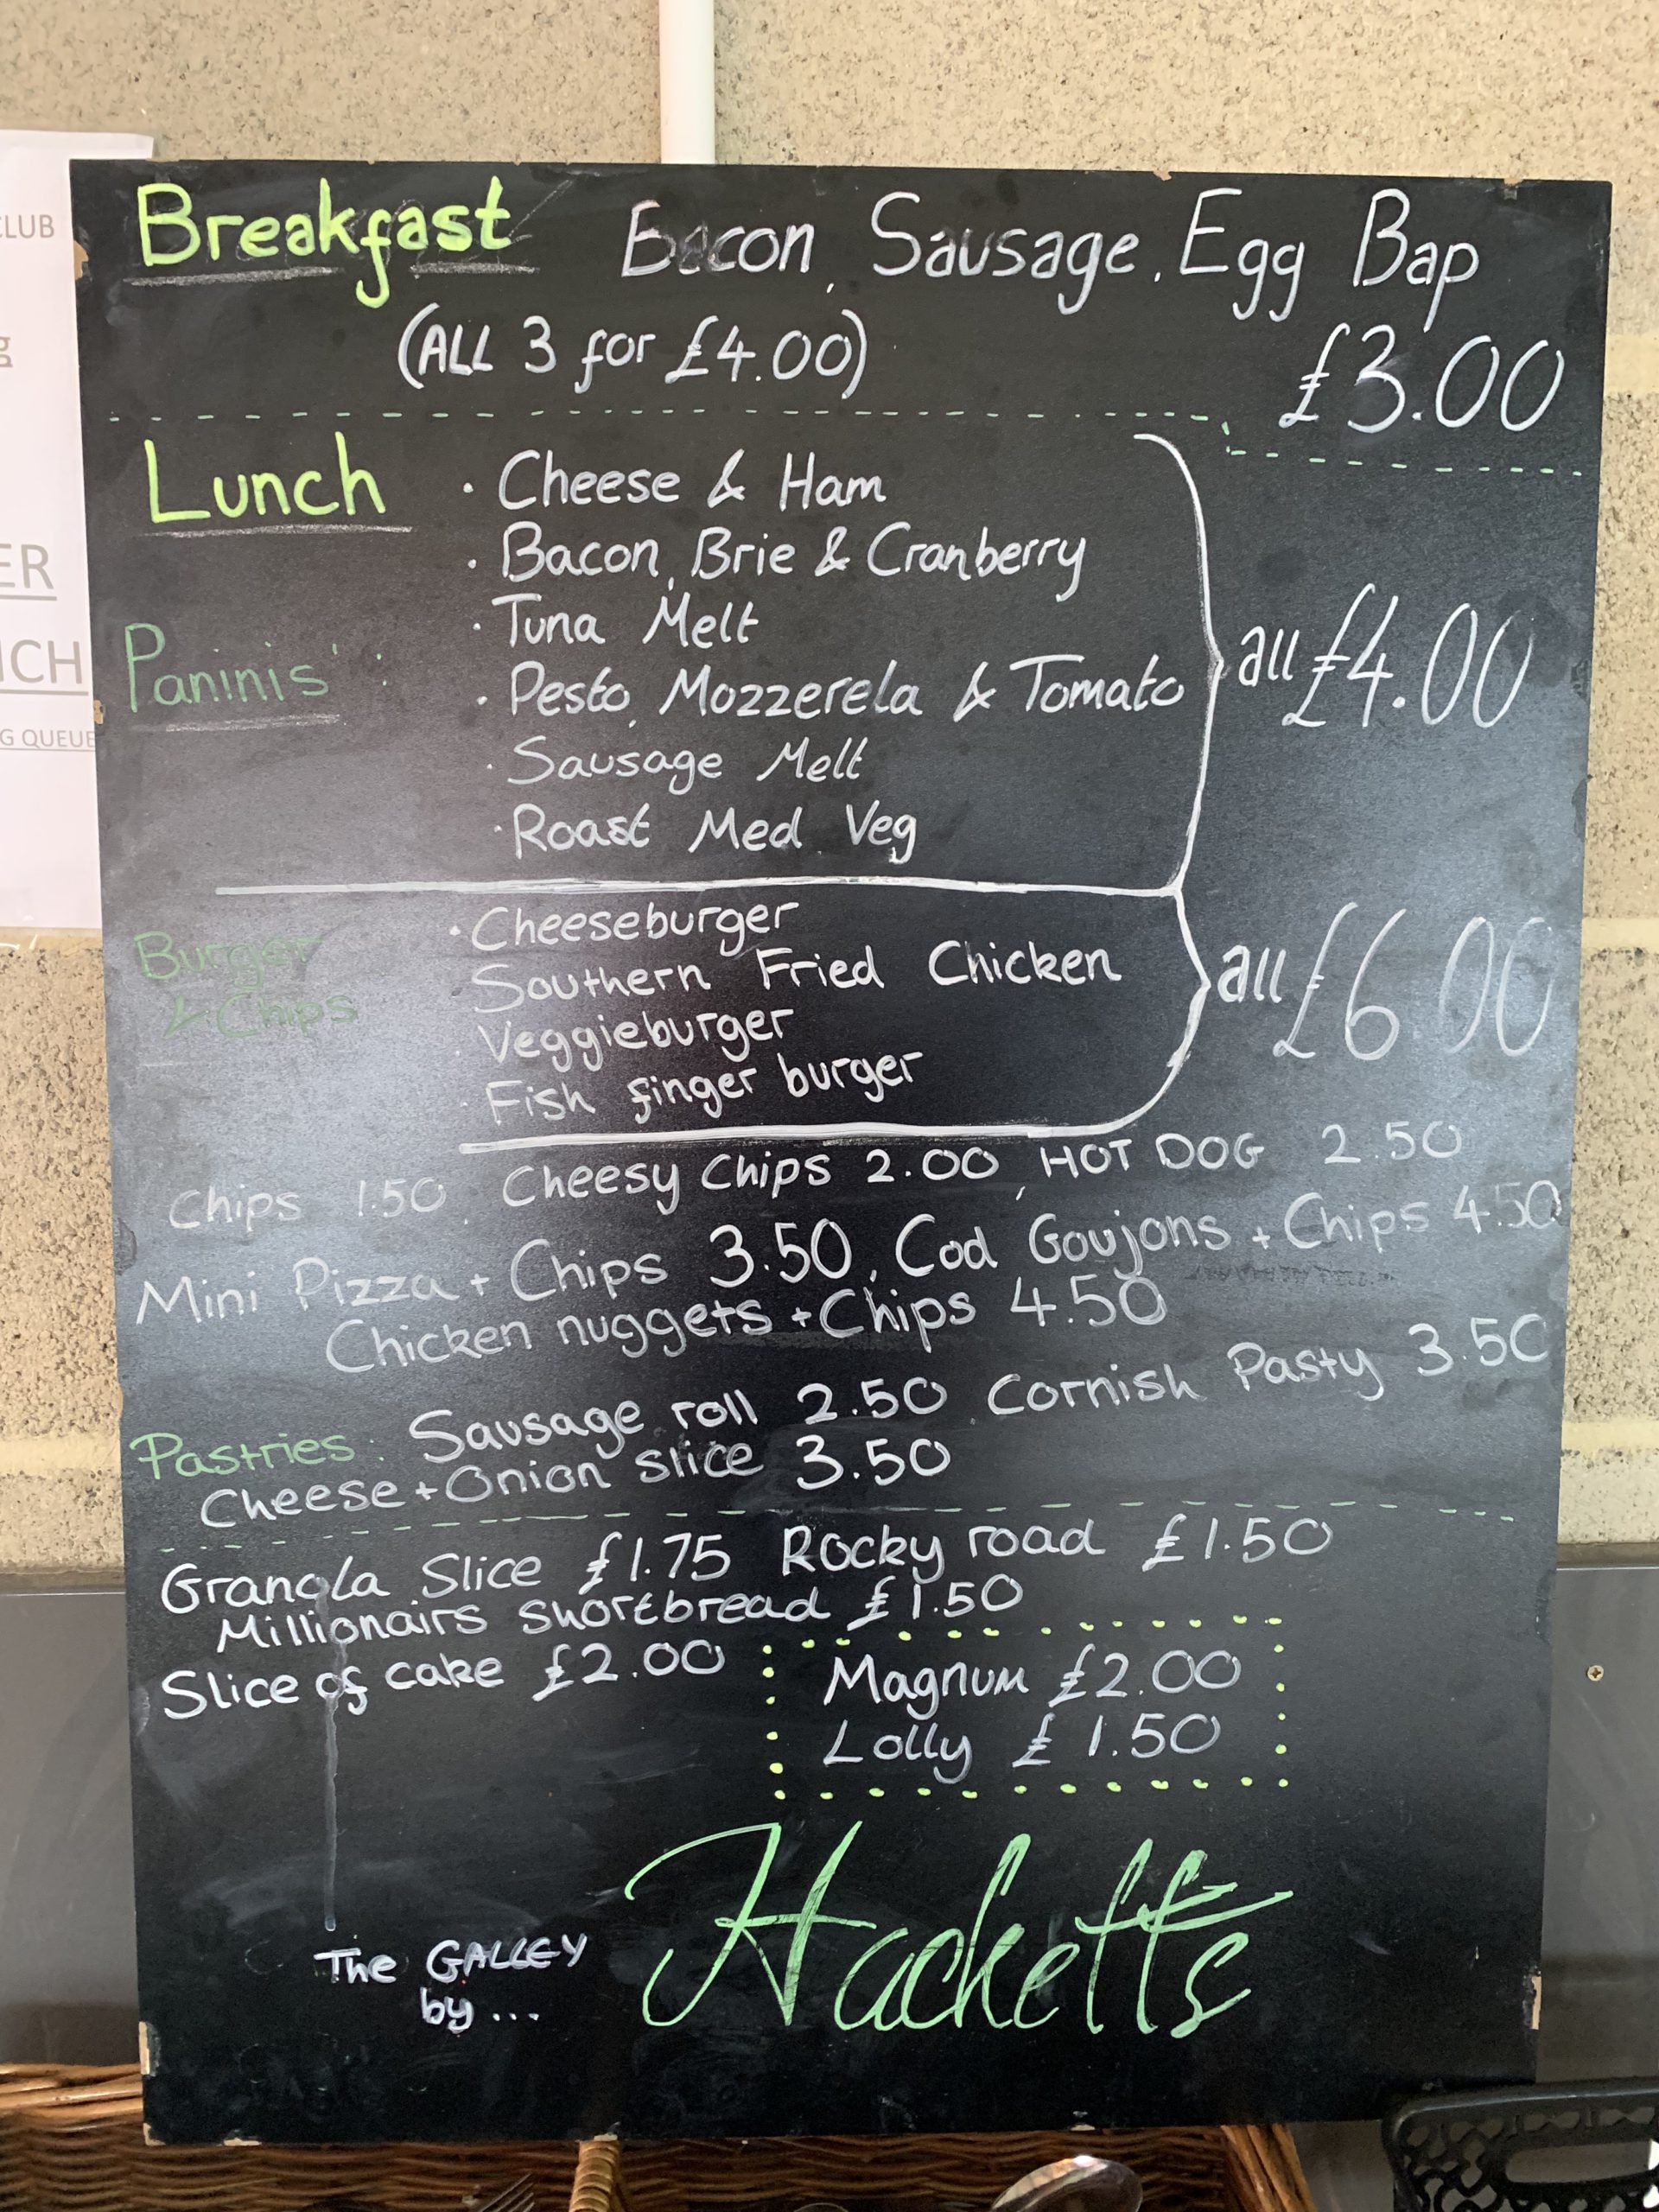 Breakfast Bacon, Sausage, Egg Bap
(ALL 3 for £4.00) £3.00
Lunch · Cheese & Ham
· Bacon, Brie & Cranberry
· Tuna Melt
Paninis' : · Pesto, Mozzerela & Tomato all £4.00
· Sausage Melt
· Roast Med Veg
Burger & Chips
· Cheeseburger
· Southern Fried Chicken all £6.00
· Veggieburger
· Fish finger burger
Chips 1.50, Cheesy Chips 2.00, HOT DOG 2.50
Mini Pizza + Chips 3.50, Cod Goujons + Chips 4.50
Chicken nuggets + Chips 4.50
Pastries: Sausage roll 2.50 Cornish Pasty 3.50
Cheese + Onion Slice 3.50
Granola Slice £1.75 Rocky road £1.50
Millionairs Shortbread £1.50
Slice of cake £2.00
Magnum £2.00
Lolly £1.50
The GALLEY
by ...
Hacketts
CLUB
G QUEUE